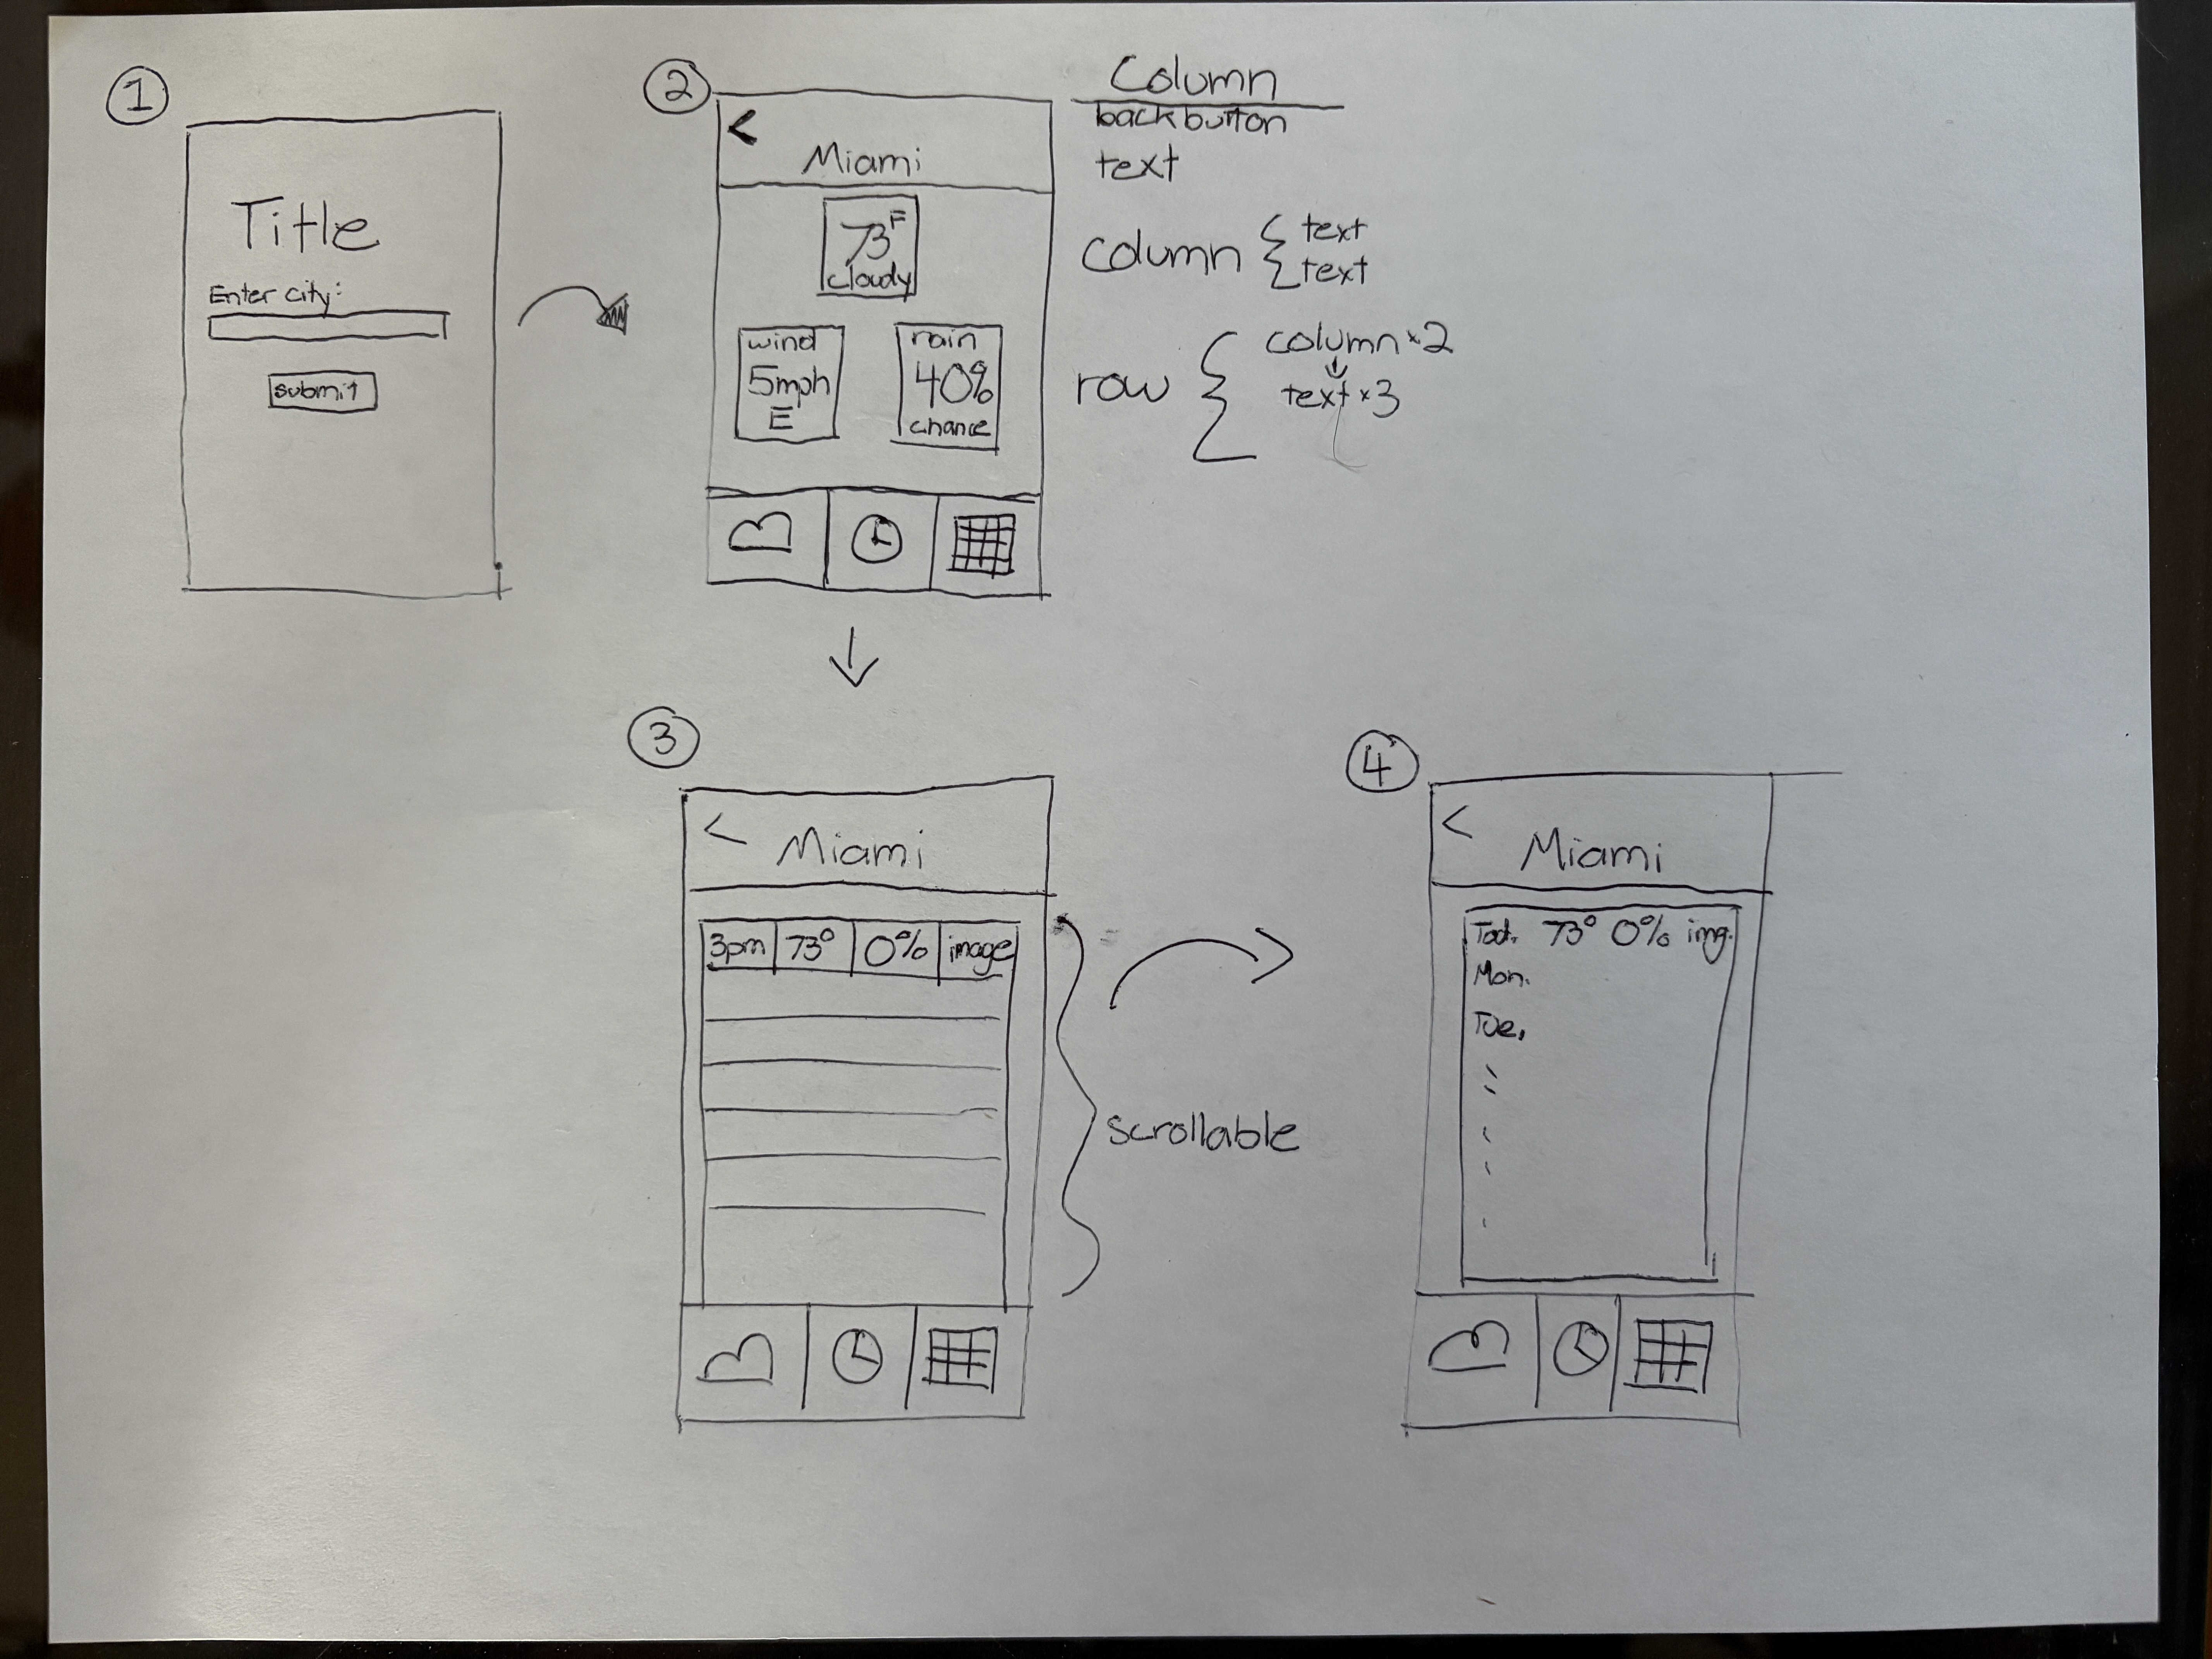 1
Title
Enter city:
submit
2
<
Miami
73F
cloudy
wind
5mph
E
rain
40%
chance
Column
back button
text
column { text
text
row { column x2
text x3
3
<
Miami
3pm 73° 0% image
scrollable
4
<
Miami
Tod. 73° 0% img.
Mon.
Tue.